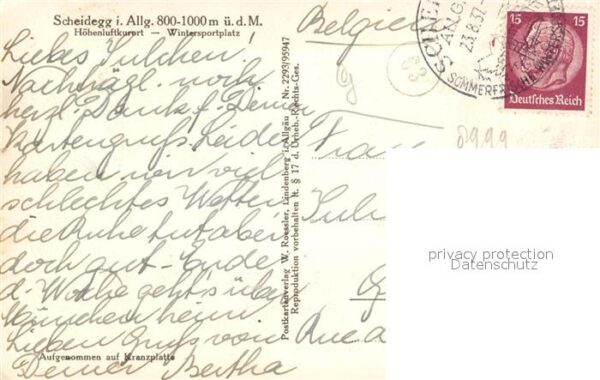 Scheidegg i. Allg. 800-1000 m ü. d. M.
Höhenluftkurort — Wintersportplatz
Liebes Julchen!
Nachträgl. noch
herzl. Dank f. Deinen
Kartengruß. Leider
haben wir viel
schlechtes Wetter
die Ruhe tut aber
doch gut. Ende
d. Woche geht's über
München heim
Lieben Gruß von
Deiner Bertha
Aufgenommen auf Kranzplatte
Postkartenverlag W. Roessler, Lindenberg i. Allgäu Nr. 2293/95947
Reproduktion vorbehalten lt. § 17 d. Urheb.-Rechts-Ges.
Belgien
23.8.37
SOMMERFR
15 15
Deutsches Reich
83
8999
Frau
Rue d
privacy protection
Datenschutz